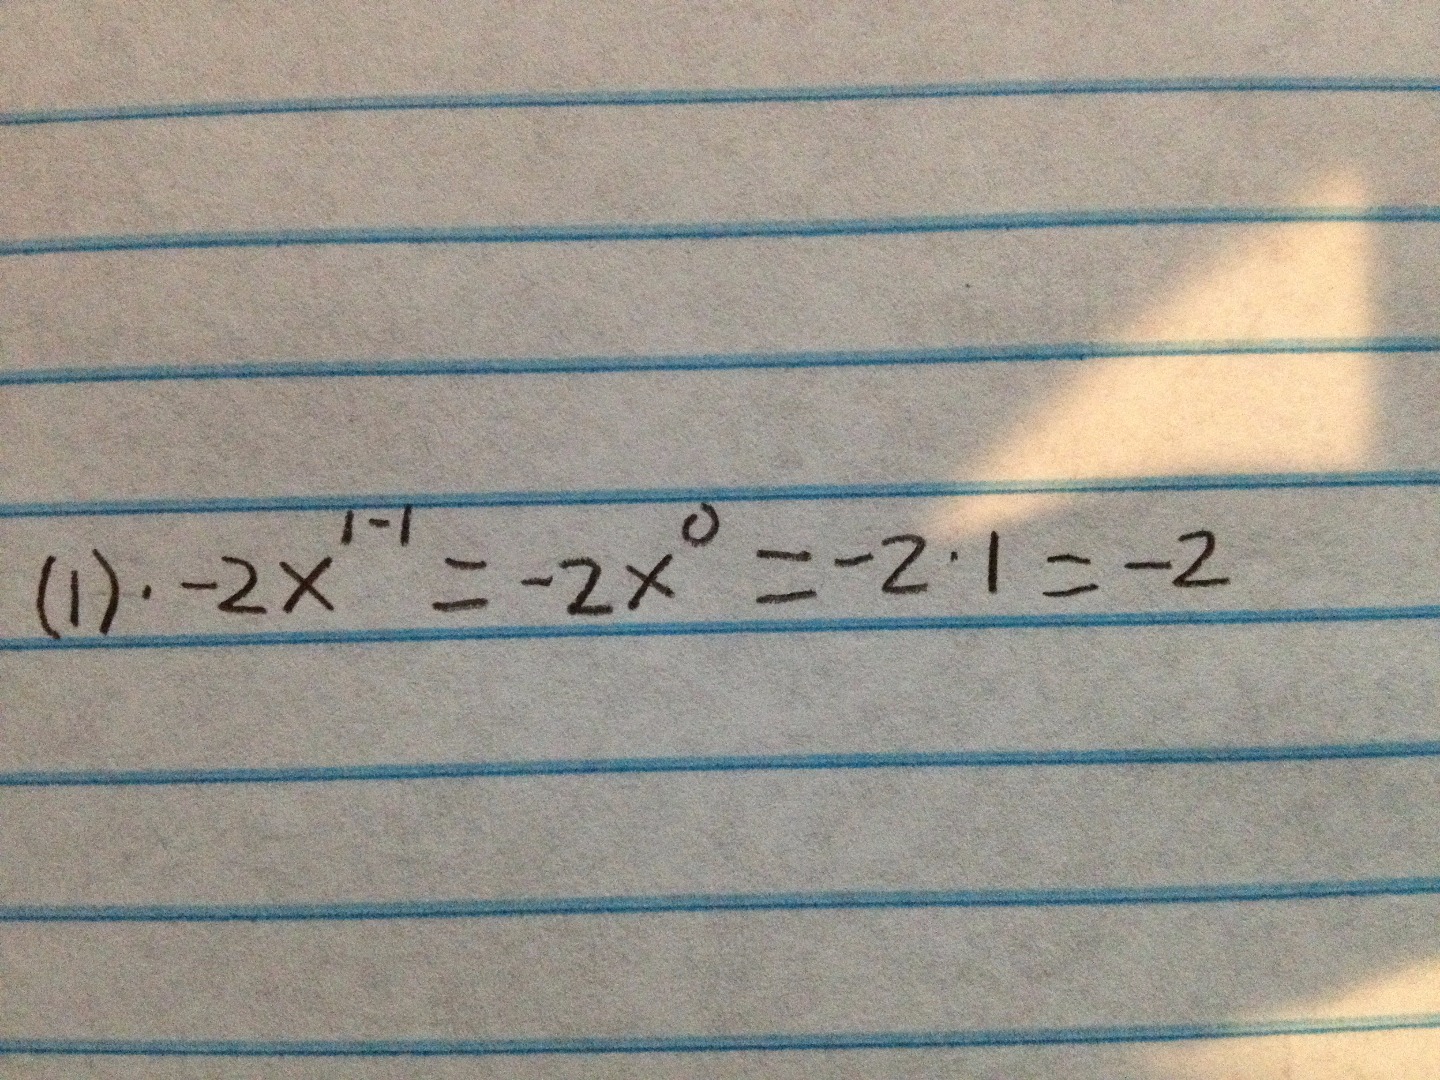 (1)·-2x^{1-1} = -2x^0 = -2·1 = -2